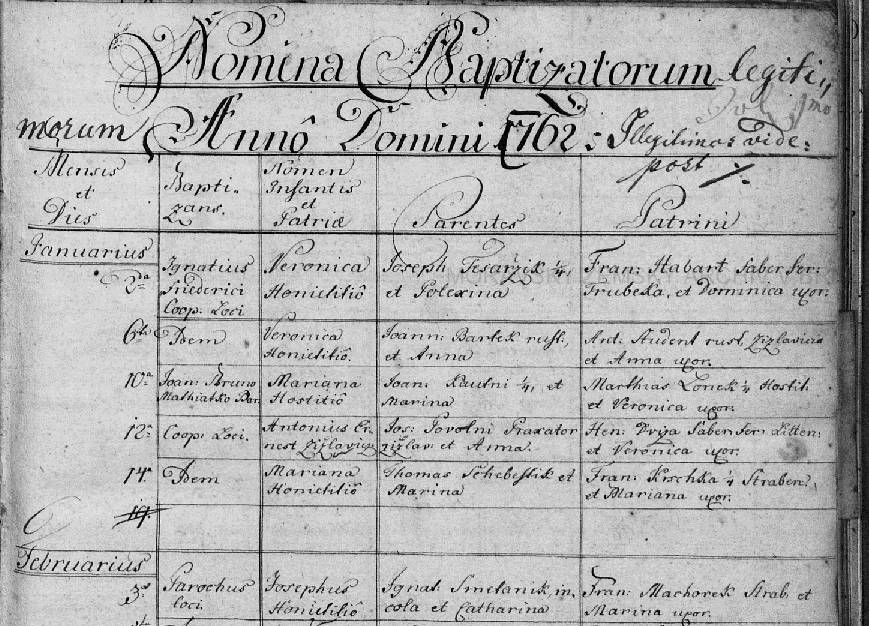 Nomina Baptizatorum legiti„
morum Annô Domini 1762: Illegitimos vide:
post ·/.
Mensis
et
Dies
Bapti-
zans.
Nomen
Infantis
et
Patriæ
Parentes
Patrini
Januarius
2da
Ignatius
Friderici
Coop: Loci
Veronica
Honietitiô
Joseph Tesarzik ¼,
et Polexina
Fran: Habart Faber Fer:
Trubeka, et Dominica uxor.
6ta
Idem
Veronica
Honietitiô.
Joann: Bartek rust:,
et Anna
Ant: Student rust. Zizlavicio
et Anna uxor.
10a
Joan: Bruno
Mathiatko Bar.
Mariana
Hostitiô
Joan: Kautni ¼, et
Marina
Matthias Lonek ¼ Hostit:
et Veronica uxor.
12a
Coop: Loci.
Antonius Er„
nest Zizlavicio
Jos: Powolni Praxator
zizlav: et Anna.
Hen: Faber Fer: Litten:
et Veronica uxor.
14a
Idem
Mariana
Honietitiô
Thomas Schebestik et
Marina
Fran: Krschka ¼ Straben:,
et Mariana uxor.
Februarius
3a
Parochus
loci.
Josephus
Honietitiô
Ignat: Smetanik, in„
cola et Catharina
Fran: Machorek Strab. et
Marina uxor.